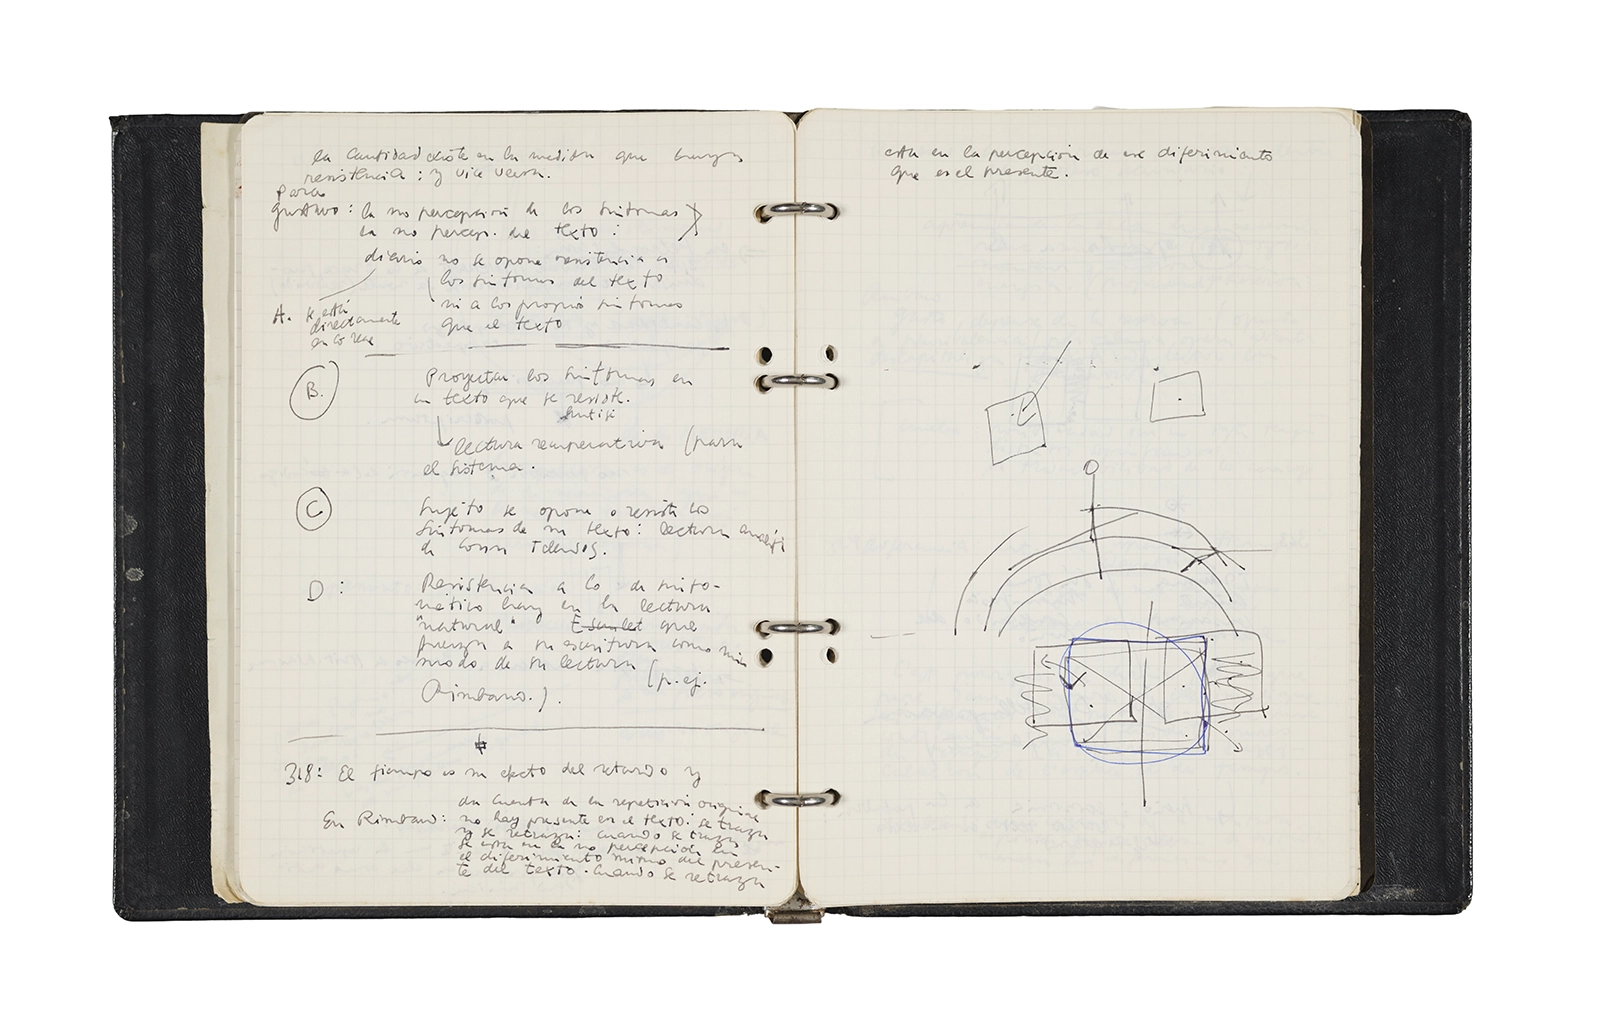 la cantidad existe en la medida que haya
resistencia; y vice versa.
Para
Gustavo: la no percepción de los síntomas
la no percep. del texto:
diario no se opone resistencia a
los síntomas del texto
ni a los propios síntomas
que el texto
A. se está
directamente
en lo real
B.
Proyectar los síntomas en
un texto que se resiste.
lectura recuperativa (para
el sistema.
C
Sujeto se opone o resiste los
síntomas de su texto: lectura
de
D:
Resistencia a lo de sinto-
mático hay en la lectura
"natural" que
a su escritura como un
modo de su lectura (p. ej.
(Rimbaud.).
318: El tiempo es un efecto del retardo y
da cuenta de la repetición
En Rimbaud: no hay presente en el texto: se traza
y se retraza: cuando se traza
se está en la no percepción en
el diferimiento mismo del presen-
te del texto. Cuando se retraza
está en la percepción de ese diferimiento
que es el presente.